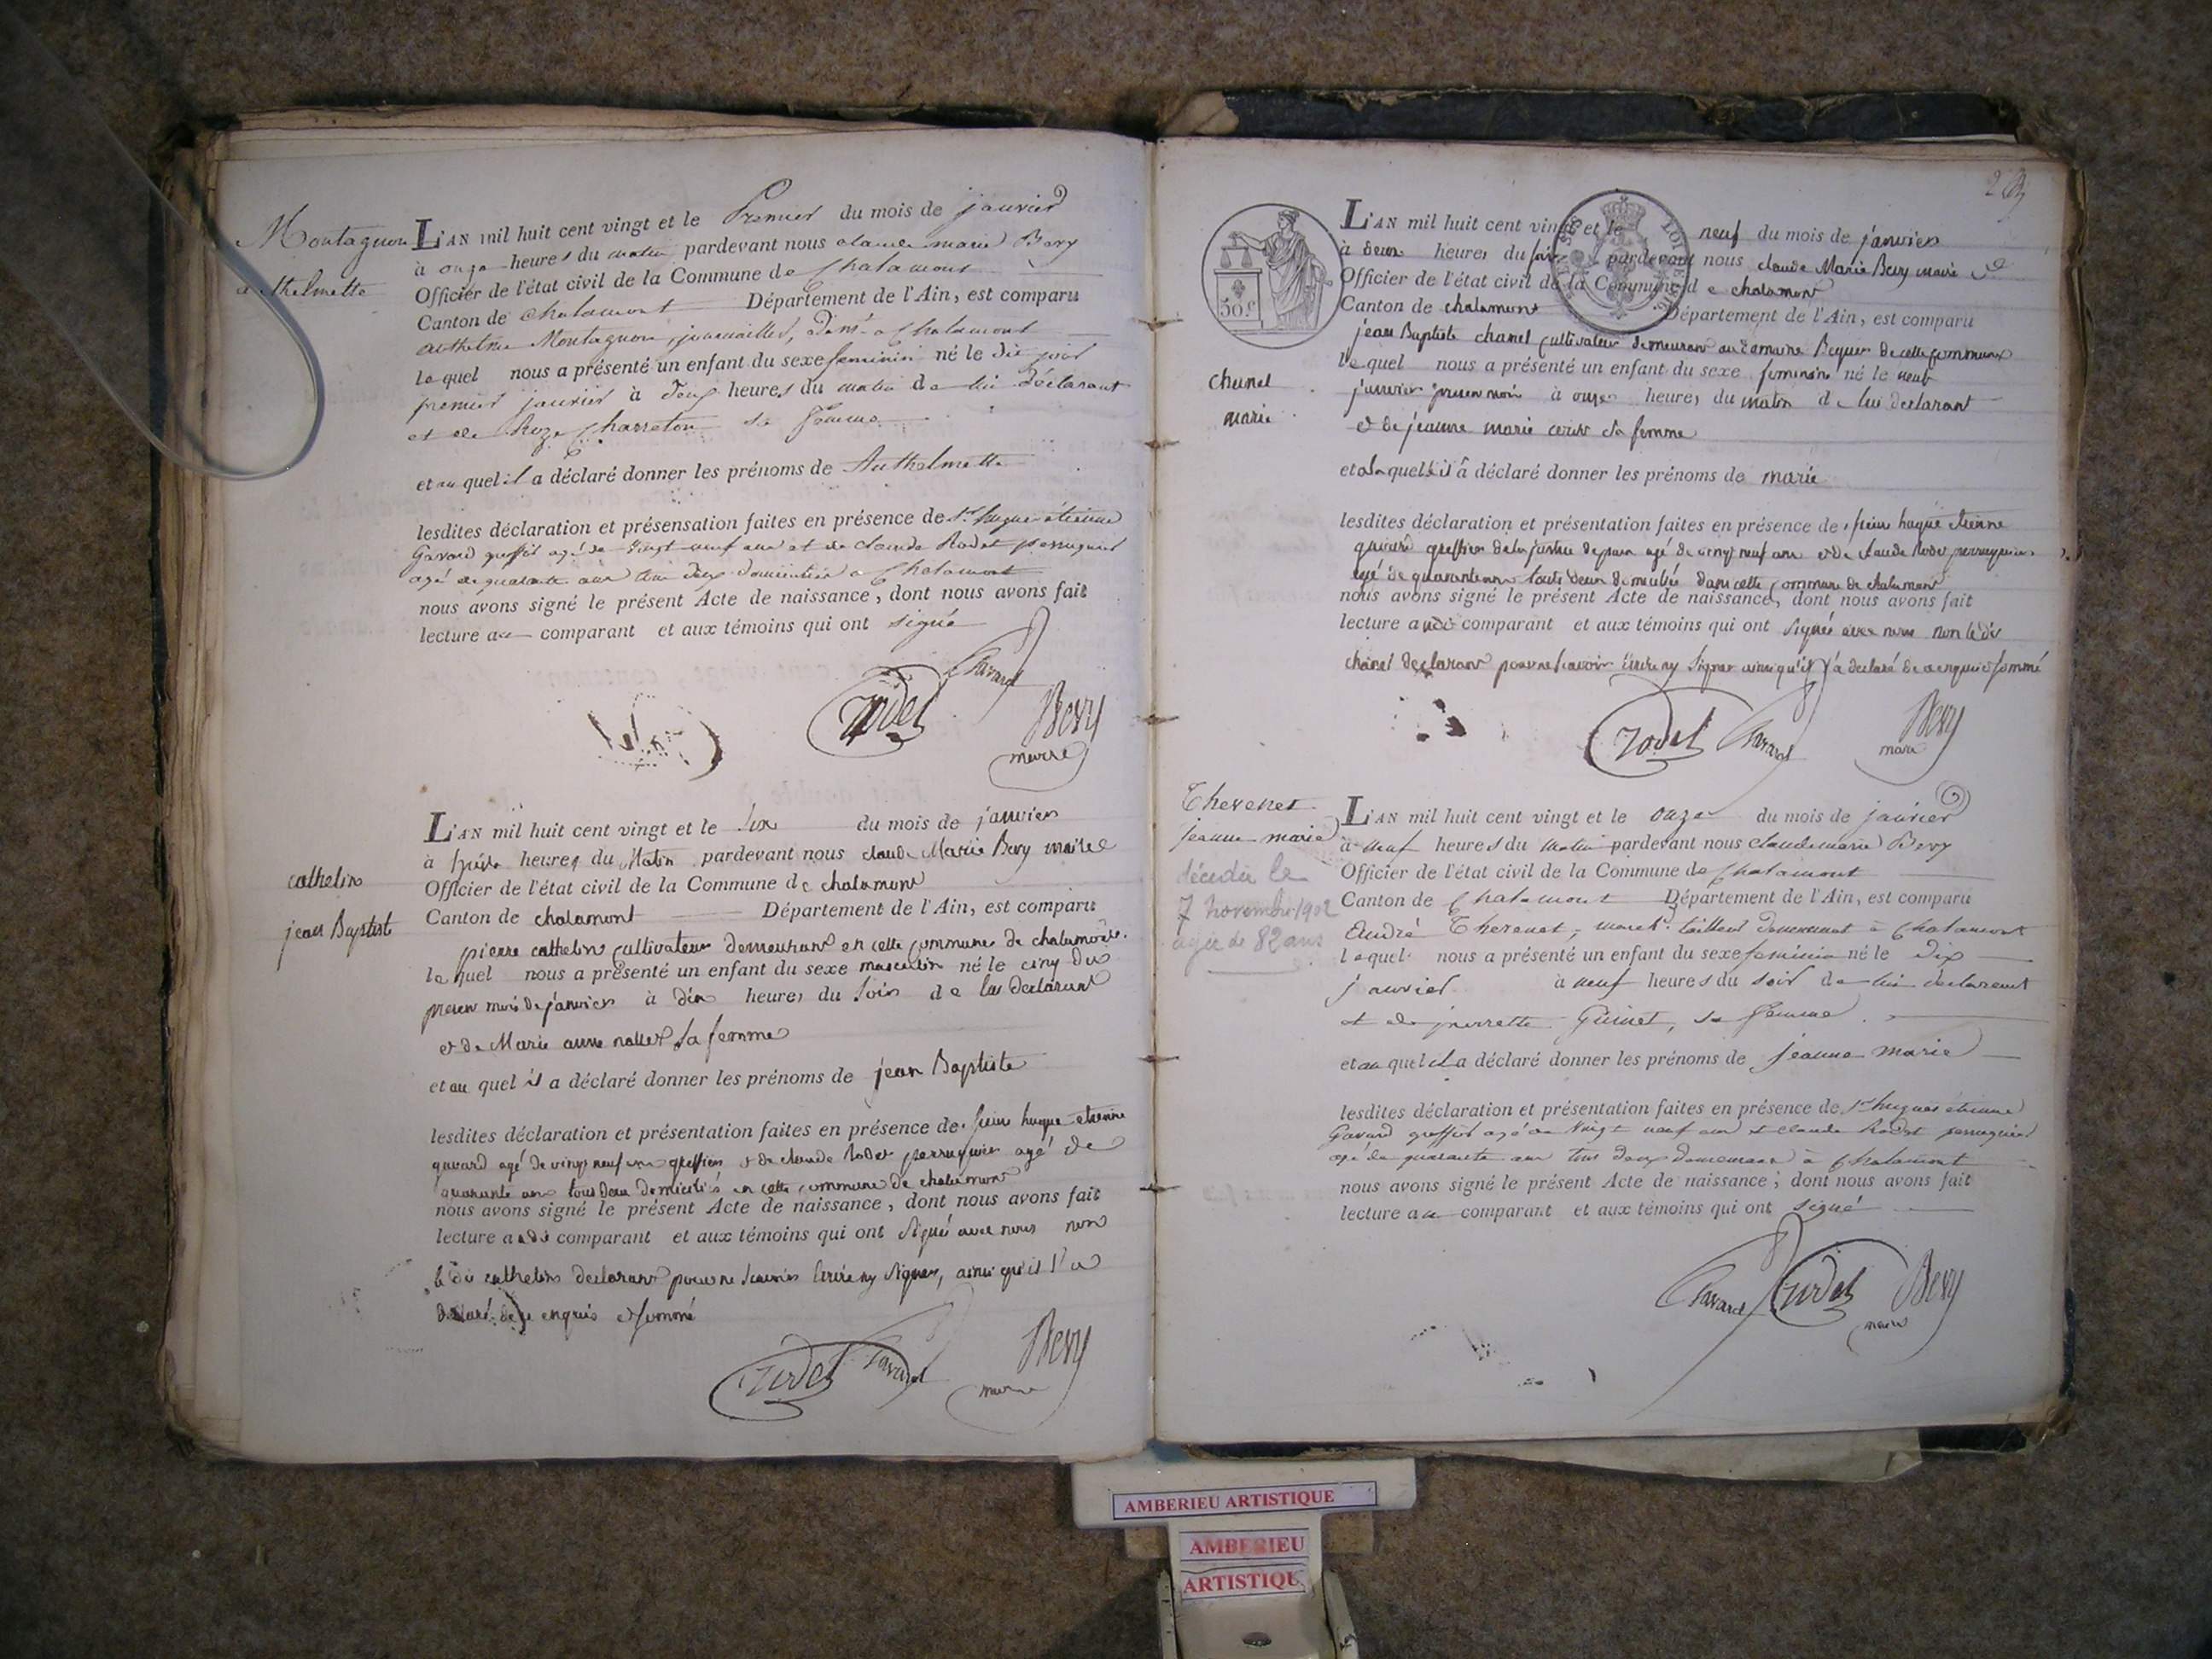 Montagnon
Anthelmette
L'AN mil huit cent vingt et le Premier du mois de janvier
à onze heures du matin pardevant nous claude marie Bevy
Officier de l'état civil de la Commune de Chalamont
Canton de Chalamont Département de l'Ain, est comparu
anthelme Montagnon, journaillier, demt. a Chalamont
le quel nous a présenté un enfant du sexe feminin né le dit jour
premier janvier à deux heures du matin de lui déclarant
et de Charreton sa femme
et au quel il a déclaré donner les prénoms de Anthelmette
lesdites déclaration et présensation faites en présence de Sr. hugue étienne
Gavard greffier agé de vingt neuf ans et de claude Rodet perruquier
agé de quarante ans tous deux domiciliés a Chalamont
nous avons signé le présent Acte de naissance, dont nous avons fait
lecture au comparant et aux témoins qui ont signé
Rodet Gavard Bevy
maire
cathelin
jean Baptiste
L'AN mil huit cent vingt et le Six du mois de janvier
à heures du Matin pardevant nous claude Marie Bevy maire
Officier de l'état civil de la Commune de chalamont
Canton de chalamont Département de l'Ain, est comparu
pierre cathelin cultivateur demeurant en cette commune de chalamont
le quel nous a présenté un enfant du sexe masculin né le cinq du
present mois de janvier à dix heures du soir de lui declarant
et de Marie anne sa femme
et au quel il a déclaré donner les prénoms de jean Baptiste
lesdites déclaration et présentation faites en présence de hugue etienne
gavard agé de vingt neuf ans greffier et de claude Rodet perruquier agé de
quarante ans tous deux domiciliés en cette commune de chalamont
nous avons signé le présent Acte de naissance, dont nous avons fait
lecture audit comparant et aux témoins qui ont signé avec nous non
le dit cathelin declarant pour ne scavoir écrire ny signer, ainsi qu'il l'a
declaré de ce enquis et sommé
Rodet Gavard Bevy
maire
LOI DE 1816
50 c.
chanel
marie
L'AN mil huit cent vingt et le neuf du mois de janvier
à deux heures du soir pardevant nous claude Marie Bevy maire
Officier de l'état civil de la Commune de chalamont
Canton de chalamont Département de l'Ain, est comparu
jean Baptiste chanel cultivateur demeurant au domaine de cette commune
le quel nous a présenté un enfant du sexe feminin né le neuf
janvier present mois à onze heures du matin de lui declarant
et de jeanne marie sa femme
et a laquelle il a déclaré donner les prénoms de marie
lesdites déclaration et présentation faites en présence de hugue etienne
gavard greffier de la justice de paix agé de vingt neuf ans et de claude Rodet perruquier
agé de quarante ans touts deux domiciliés dans cette commune de chalamont
nous avons signé le présent Acte de naissance, dont nous avons fait
lecture audit comparant et aux témoins qui ont signés avec nous non le dit
chanel declarant pour ne scavoir écrire ny signer ainsi qu'il l'a declaré de ce enquis et sommé
Rodet Gavard Bevy
maire
Thevenet
jeanne marie
décédée le
7 novembre 1902
agée de 82 ans
L'AN mil huit cent vingt et le onze du mois de janvier
à neuf heures du matin pardevant nous claude marie Bevy
Officier de l'état civil de la Commune de Chalamont
Canton de Chalamont Département de l'Ain, est comparu
André Thevenet, march. tailleur demeurant à Chalamont
lequel nous a présenté un enfant du sexe feminin né le dix
janvier à neuf heures du soir de lui declarant
et de pierrette Guinet, sa femme
et au quel il a déclaré donner les prénoms de jeanne marie
lesdites déclaration et présentation faites en présence de Sr. hugues étienne
Gavard greffier agé de vingt neuf ans et claude Rodet perruquier
agé de quarante ans tous deux demeurant à Chalamont
nous avons signé le présent Acte de naissance; dont nous avons fait
lecture au comparant et aux témoins qui ont signé
Gavard Rodet Bevy
maire
AMBERIEU ARTISTIQUE
AMBERIEU
ARTISTIQUE